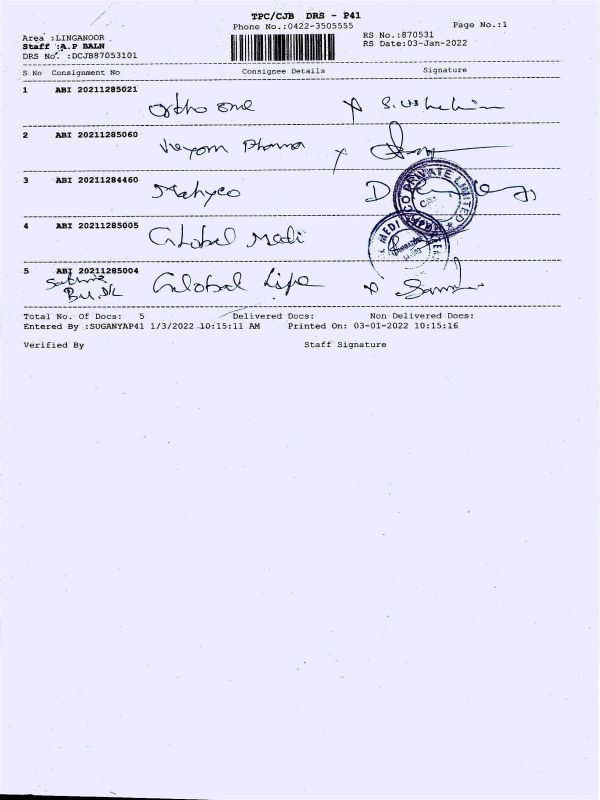 TPC/CJB DRS - P41
Phone No.:0422-3505555
Page No.:1
Area :LINGANOOR
RS No.:870531
Staff :A.P BALN
RS Date:03-Jan-2022
DRS No. :DCJB87053101
S No Consignment No Consignee Details Signature
1 ABI 20211285021
Ortho one
2 ABI 20211285060
Pharma
3 ABI 20211284460
Mahyco
PRIVATE LIMITED
4 ABI 20211285005
Global Medi
MEDI
5 ABI 20211285004
Global Life
Total No. Of Docs: 5 Delivered Docs: Non Delivered Docs:
Entered By :SUGANYAP41 1/3/2022 10:15:11 AM Printed On: 03-01-2022 10:15:16
Verified By Staff Signature